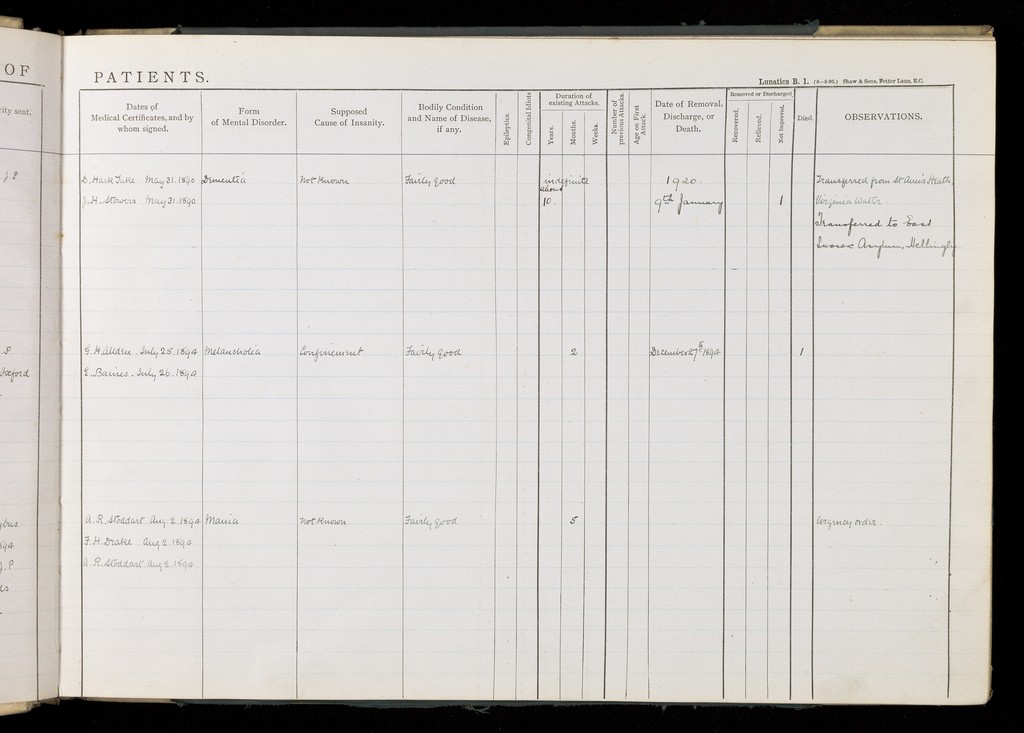 OF
PATIENTS.
Lunatics B. 1. (6—5-90.) Shaw & Sons, Fetter Lane, E.C.
city sent.
Dates of
Medical Certificates, and by
whom signed.
Form
of Mental Disorder.
Supposed
Cause of Insanity.
Bodily Condition
and Name of Disease,
if any.
Epileptics.
Congenital Idiots
Duration of
existing Attacks.
Years.
Months.
Weeks.
Number of
previous Attacks.
Age on First
Attack.
Date of Removal,
Discharge, or
Death.
Removed or Discharged
Recovered.
Relieved.
Not Improved.
Died.
OBSERVATIONS.
J.P
D. Hack Tuke May 31. 1890 Dementia Not Known Fairly good indefinite 1920. Transferred from St Ann's Heath,
about
J. H. Stowers May 31. 1890 10. 9th January 1 Virginia Water.
Transferred to East
Sussex Asylum, Hellingly
P
G. H. Allden. July 25. 1894 Melancholia Confinement Fairly good 2 December 27th 1894 1
Oxford
E. Baines. July 26. 1894
A. R. Stoddart. Aug. 2. 1894 Mania Not Known Fairly good 5 Urgency order.
894
F. H. Drake. Aug 2. 1894
J. P
A. R. Stoddart. Aug 2. 1894